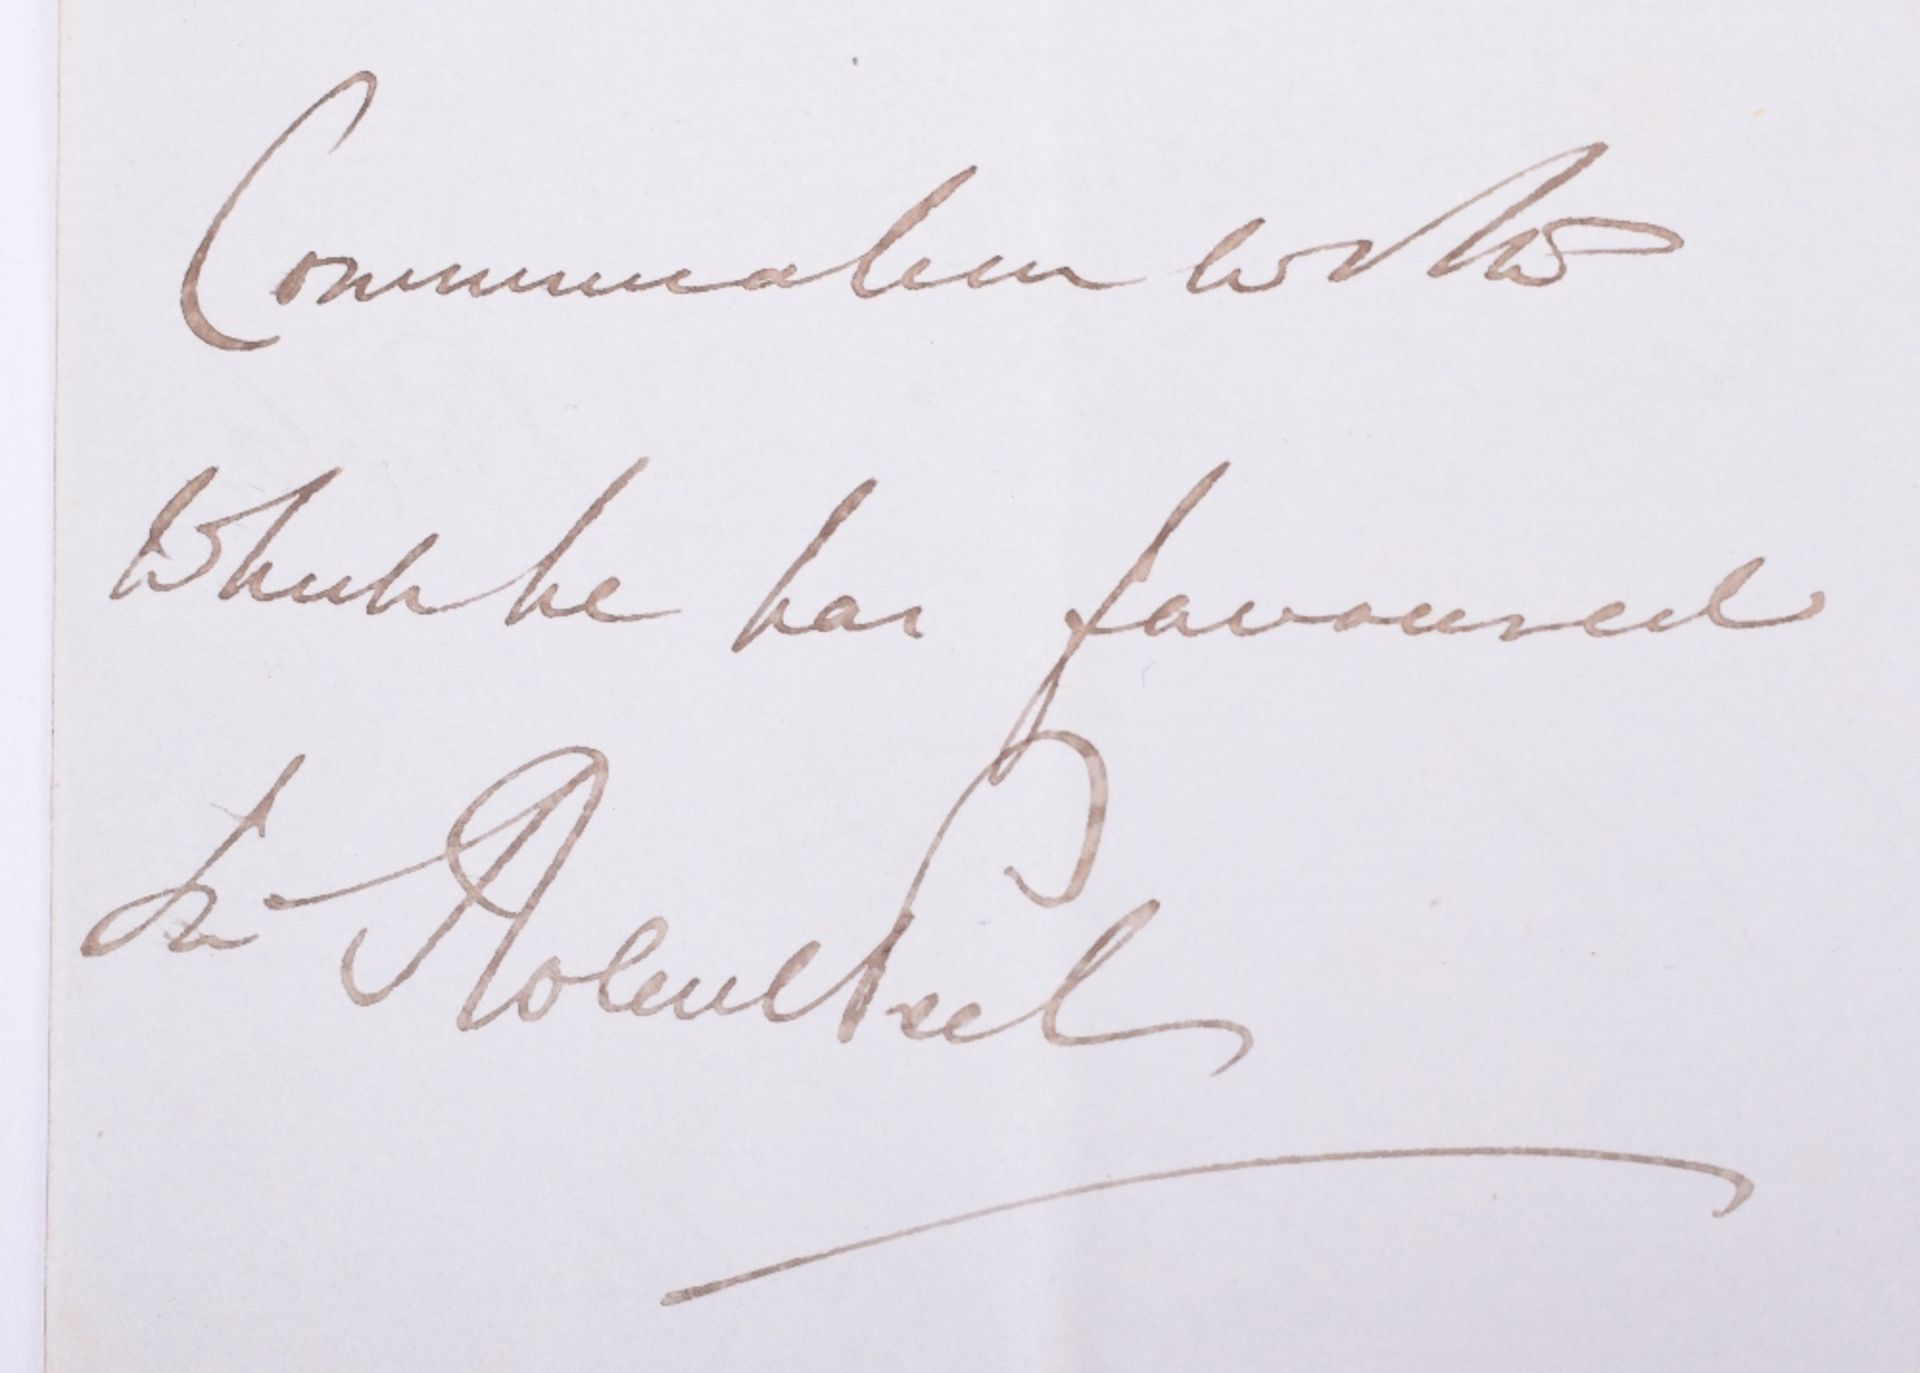 Communication with
which he has favoured
Sir Robert Peel